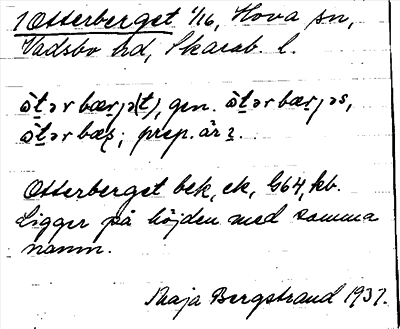 1 Otterberget 1/16, Hova sn,
Vadsbo hd, Skarab. l.
ò̀tər bærjə(t), gen. ò̀tər bærjəs,
ò̀tər bæş; prep. är
Otterberget bek, ek, G64, kb.
Ligger på höjden med samma
namn.
Maja Bergstrand 1937.